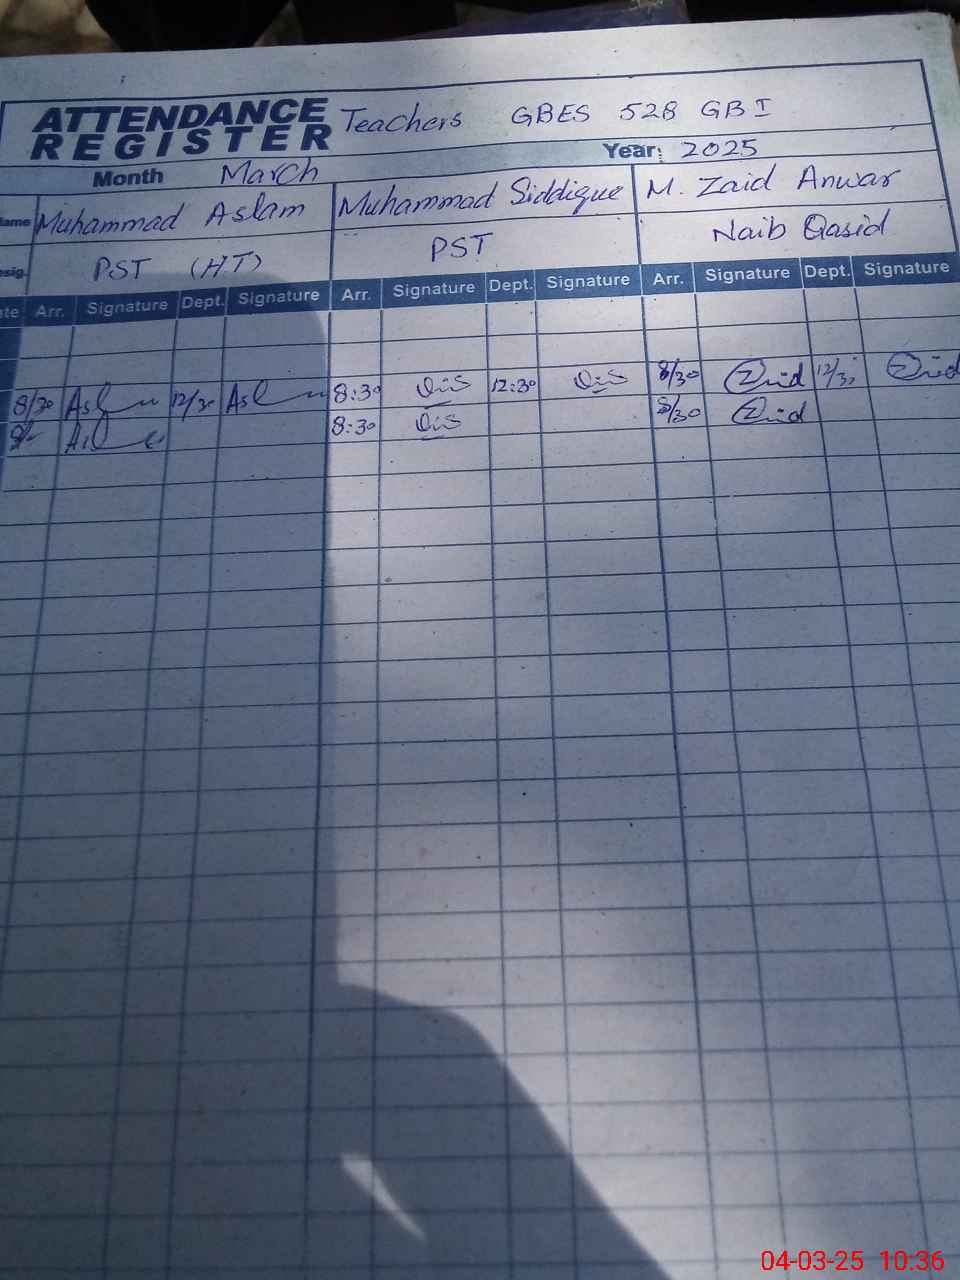 ATTENDANCE REGISTER Teachers GBES 528 GB I
Month March Year: 2025
ame Muhammad Aslam Muhammad Siddique M. Zaid Anwar
esig. PST (HT) PST Naib Qasid
ate Arr. Signature Dept. Signature Arr. Signature Dept. Signature Arr. Signature Dept. Signature
8/30 12/30 8:30 12:30 8/30 Zaid 12/30 Zaid
8:30 8/30 Zaid
04-03-25 10:36